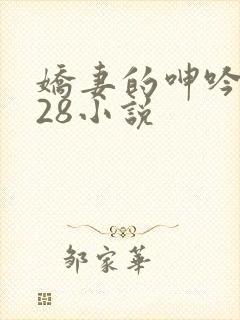 嬌妻的呻吟
28小說
邹家華